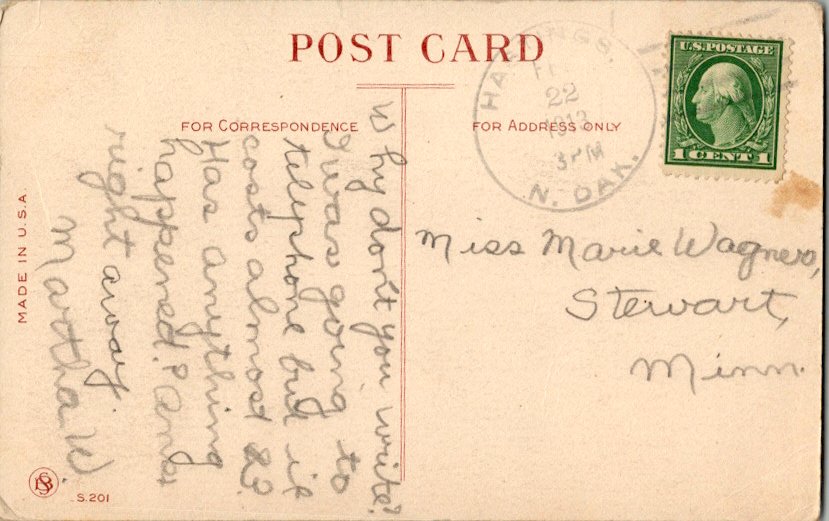 POST CARD
FOR CORRESPONDENCE
FOR ADDRESS ONLY
HASTINGS,
22
1913
3 PM
N. DAK.
U.S. POSTAGE
1 CENT 1
Why don't you write?
I was going to
telephone but it
costs almost $2.
Has anything
happened? Ans
right away.
Martha W.
Miss Marie Wagner,
Stewart,
Minn.
MADE IN U.S.A.
S.201